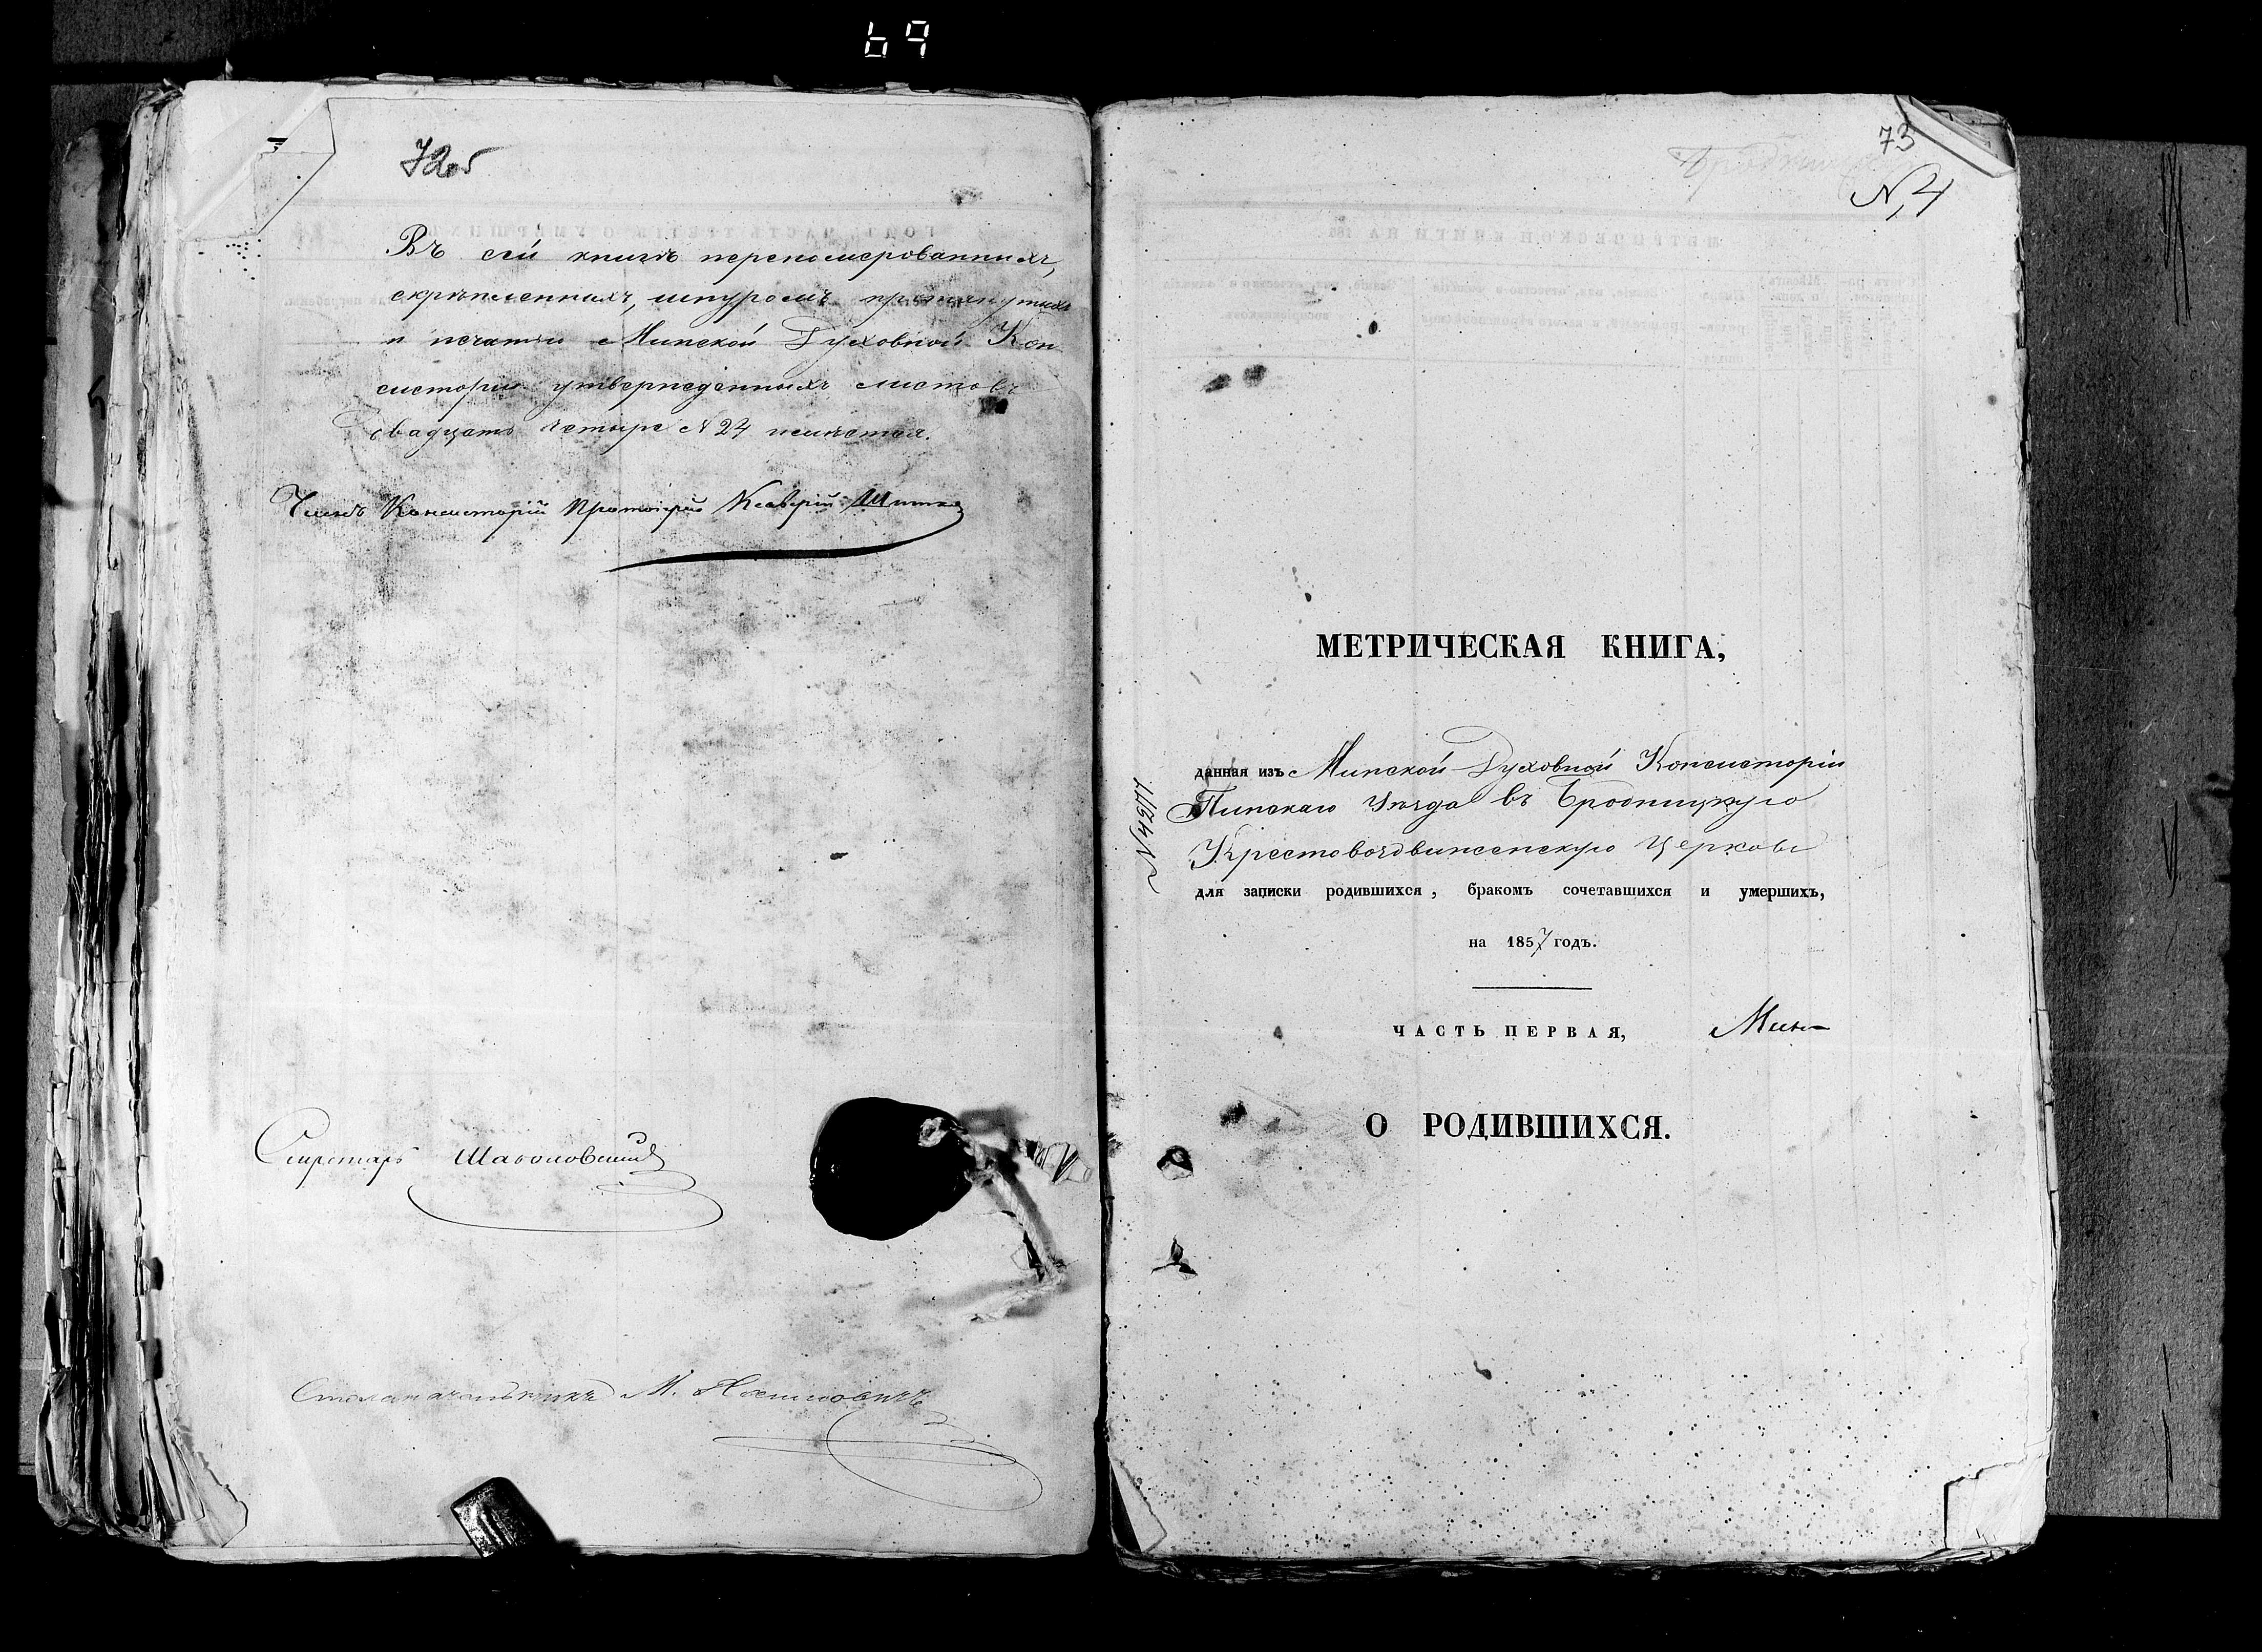 69
72об
Въ сей книгѣ переномерованныхъ,
скрѣпленныхъ, шнуромъ протянутыхъ
и печатью Минской Духовной Кон
систоріи утвержденныхъ листовъ
двадцать четыре № 24
Членъ Консисторіи Протоіерей Ксаверій
Секретарь
Столоначальникъ М.
73
N, 4
МЕТРИЧЕСКАЯ КНИГА,
данная изъ Минской Духовной Консисторіи
Пинскаго Уѣзда въ Бродницкую
Крестовоздвиженскую Церковь
для записки родившихся, бракомъ сочетавшихся и умершихъ,
на 1857 годъ.
ЧАСТЬ ПЕРВАЯ,
О РОДИВШИХСЯ.